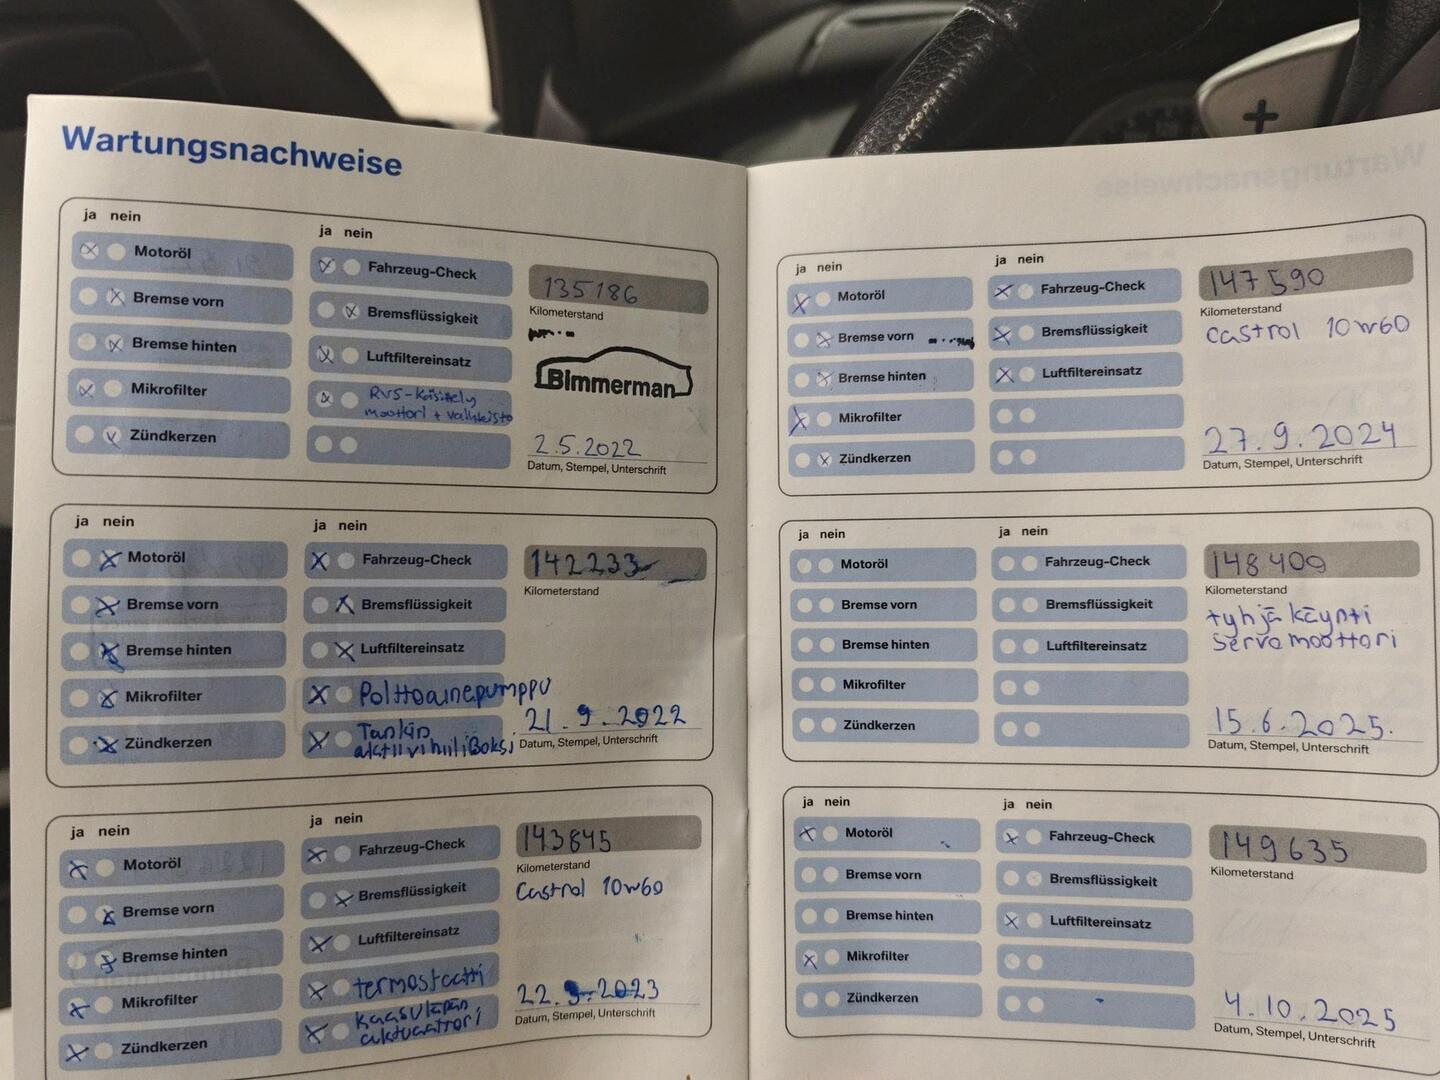 Wartungsnachweise
ja nein
Motoröl
Bremse vorn
Bremse hinten
Mikrofilter
Zündkerzen
ja nein
Fahrzeug-Check
Bremsflüssigkeit
Luftfiltereinsatz
RVS-käsittely
moottori + vaihteisto
135186
Kilometerstand
Bimmerman
2.5.2022
Datum, Stempel, Unterschrift
ja nein
Motoröl
Bremse vorn
Bremse hinten
Mikrofilter
Zündkerzen
ja nein
Fahrzeug-Check
Bremsflüssigkeit
Luftfiltereinsatz
Polttoainepumppu
Tankin
aktiivihiiliBoksi
142233
Kilometerstand
21.9.2022
Datum, Stempel, Unterschrift
ja nein
Motoröl
Bremse vorn
Bremse hinten
Mikrofilter
Zündkerzen
ja nein
Fahrzeug-Check
Bremsflüssigkeit
Luftfiltereinsatz
termostaatti
kaasuläpän
aktuaattori
143845
Kilometerstand
Castrol 10w60
22.9.2023
Datum, Stempel, Unterschrift
ja nein
Motoröl
Bremse vorn
Bremse hinten
Mikrofilter
Zündkerzen
ja nein
Fahrzeug-Check
Bremsflüssigkeit
Luftfiltereinsatz
147590
Kilometerstand
Castrol 10w60
27.9.2024
Datum, Stempel, Unterschrift
ja nein
Motoröl
Bremse vorn
Bremse hinten
Mikrofilter
Zündkerzen
ja nein
Fahrzeug-Check
Bremsflüssigkeit
Luftfiltereinsatz
148400
Kilometerstand
tyhjä käynti
servomoottori
15.6.2025.
Datum, Stempel, Unterschrift
ja nein
Motoröl
Bremse vorn
Bremse hinten
Mikrofilter
Zündkerzen
ja nein
Fahrzeug-Check
Bremsflüssigkeit
Luftfiltereinsatz
149635
Kilometerstand
4.10.2025
Datum, Stempel, Unterschrift